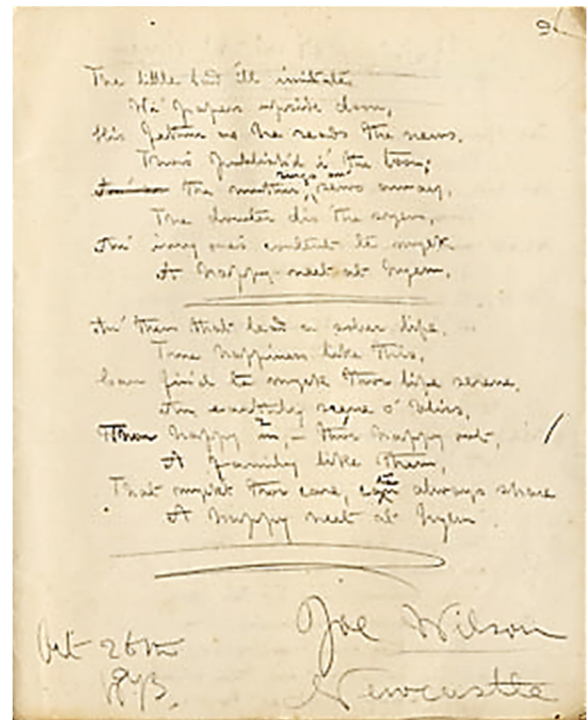 9
The little lad 'ill imitate,
Wi' papers upside doon,
His fethur as he reads the news,
Thats publish'd i' the toon;
the muther, sings an' sews away,
The dowter dis the syem,
An' ivry one's content te myek
A happy neet at hyem.
An' them that lead a sober life,
True happiness like this,
Can find te myek thor life serene,
An earthly scene o' bliss,
Thor happy in, – thor happy oot,
A family like them,
That myek thor care, can always share
A happy neet at hyem.
Joe Wilson
Oct 26th
1873.
Newcastle